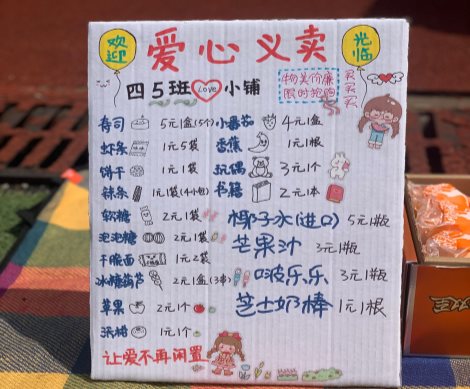 欢迎
爱心义卖
光临
四5班 Love 小铺
物美价廉
限时抢购
买买买
寿司 5元1盒(5个)
虾条 1元5袋
饼干 1元1袋
辣条 1元1袋(4小包)
软糖 2元1袋
泡泡糖 2元1袋
干脆面 1元2袋
冰糖葫芦 2元1盒(3串)
苹果 2元1个
沃柑 1元1个
小番茄 4元1盒
香蕉 1元1根
玩偶 3元1个
书籍 2元1本
椰子水(进口) 5元1瓶
芒果汁 3元1瓶
啵乐乐 3元1瓶
芝士奶棒 1元1根
让爱不再闲置